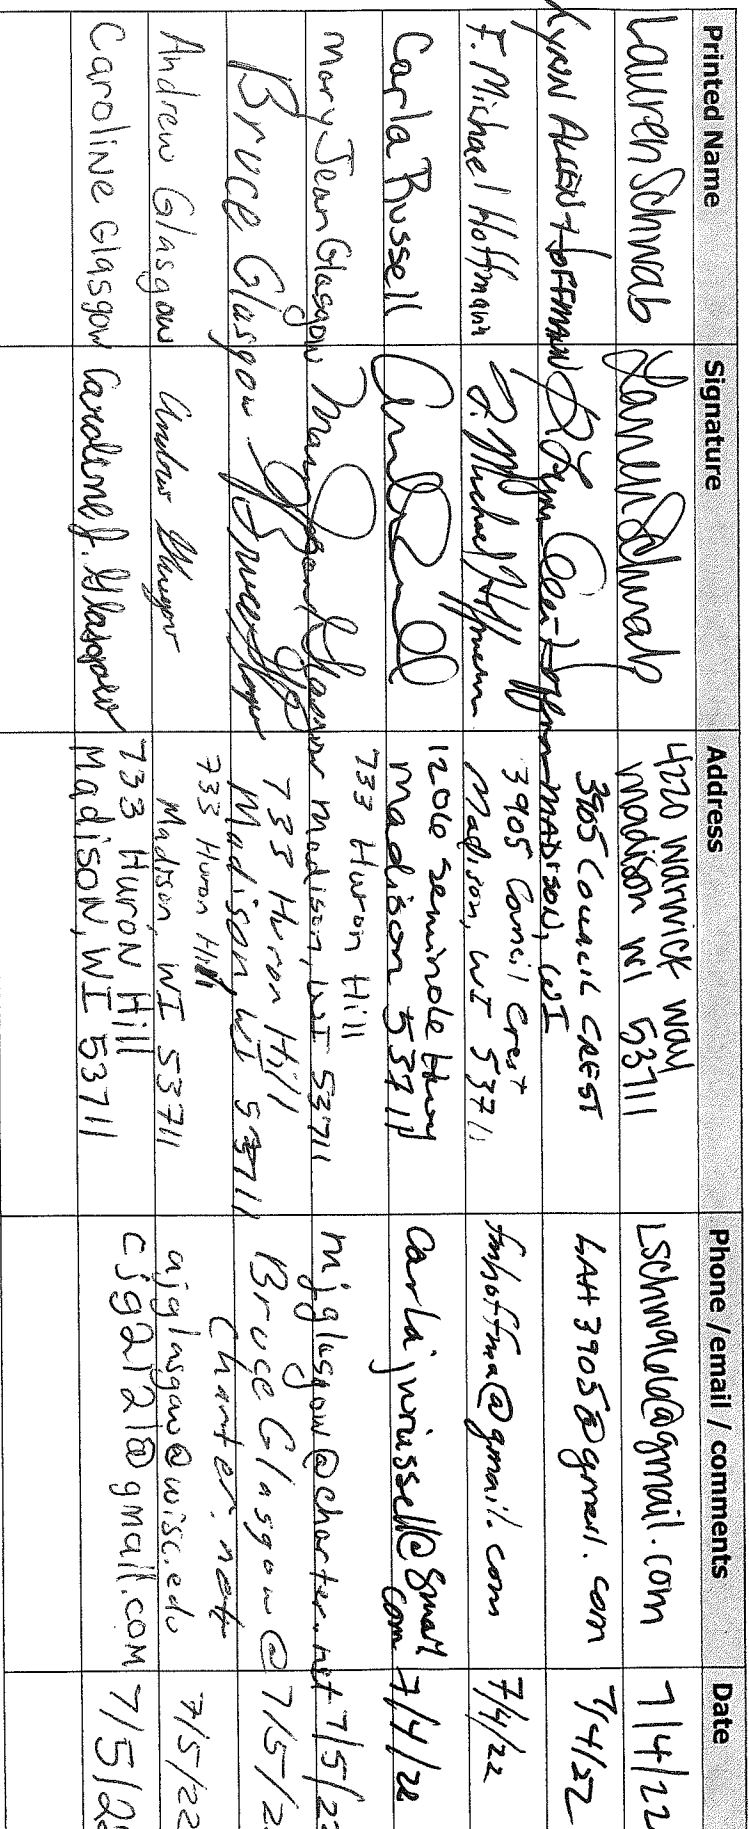 Printed Name Signature Address Phone /email / comments Date
Lauren Schwab Lauren Schwab 4220 Warwick Way Madison WI 53711 Lschwalb@gmail.com 7/4/22
Lynn Allen-Hoffmann 3905 Council Crest Madison, WI LAH3905@gmail.com 7/4/22
F. Michael Hoffmann F. Michael Hoffmann 3905 Council Crest Madison, WI 53711 fmhoffma@gmail.com 7/4/22
Carla Russell 1206 Seminole Hwy Madison 53711 carlajwrussell@gmail.com 7/4/22
Mary Jean Glasgow Mary Jean Glasgow 733 Huron Hill Madison, WI 53711 mjglasgow@charter.net 7/5/22
Bruce Glasgow Bruce Glasgow 733 Huron Hill Madison, WI 53711 BruceGlasgow@charter.net 7/5/2
Andrew Glasgow Andrew Glasgow 733 Huron Hill Madison, WI 53711 ajglasgow@wisc.edu 7/5/22
Caroline Glasgow Caroline J. Glasgow 733 Huron Hill Madison, WI 53711 cjg2121@gmail.com 7/5/2